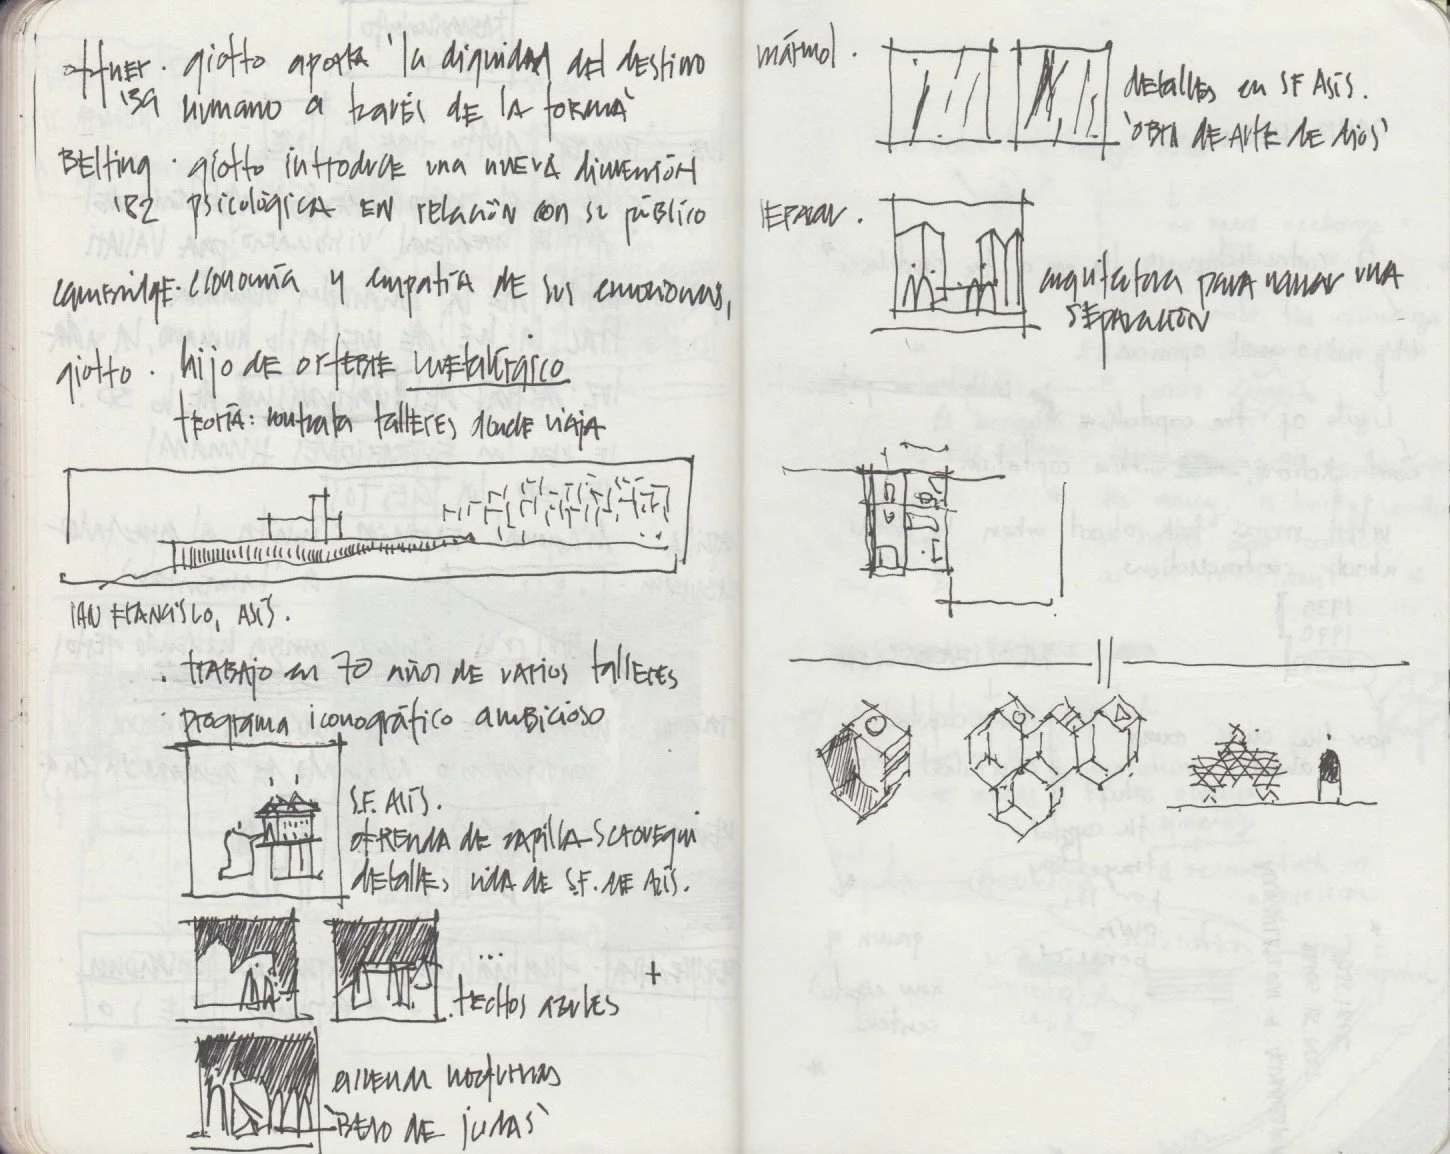 offner · giotto aporta 'la dignidad del destino
'39 humano a través de la forma'
Belting · giotto introduce una nueva dimensión
'82 psicológica en relación con su público
Cambridge · economía y empatía de sus emociones,
giotto · hijo de orfebre metalúrgico
teoría: contrata talleres donde viaja
San Francisco, Asís.
· trabajo en 70 años de varios talleres
· programa iconográfico ambicioso
S.F. Asís.
ofrenda de capilla Scrovegni
detalles vida de S.F. de Asís.
...
· techos azules
+
escenas nocturnas
'Beso de judas'
mármol ·
detalles en SF Asís.
'obra de arte de dios'
separar ·
arquitectura para narrar una
separación